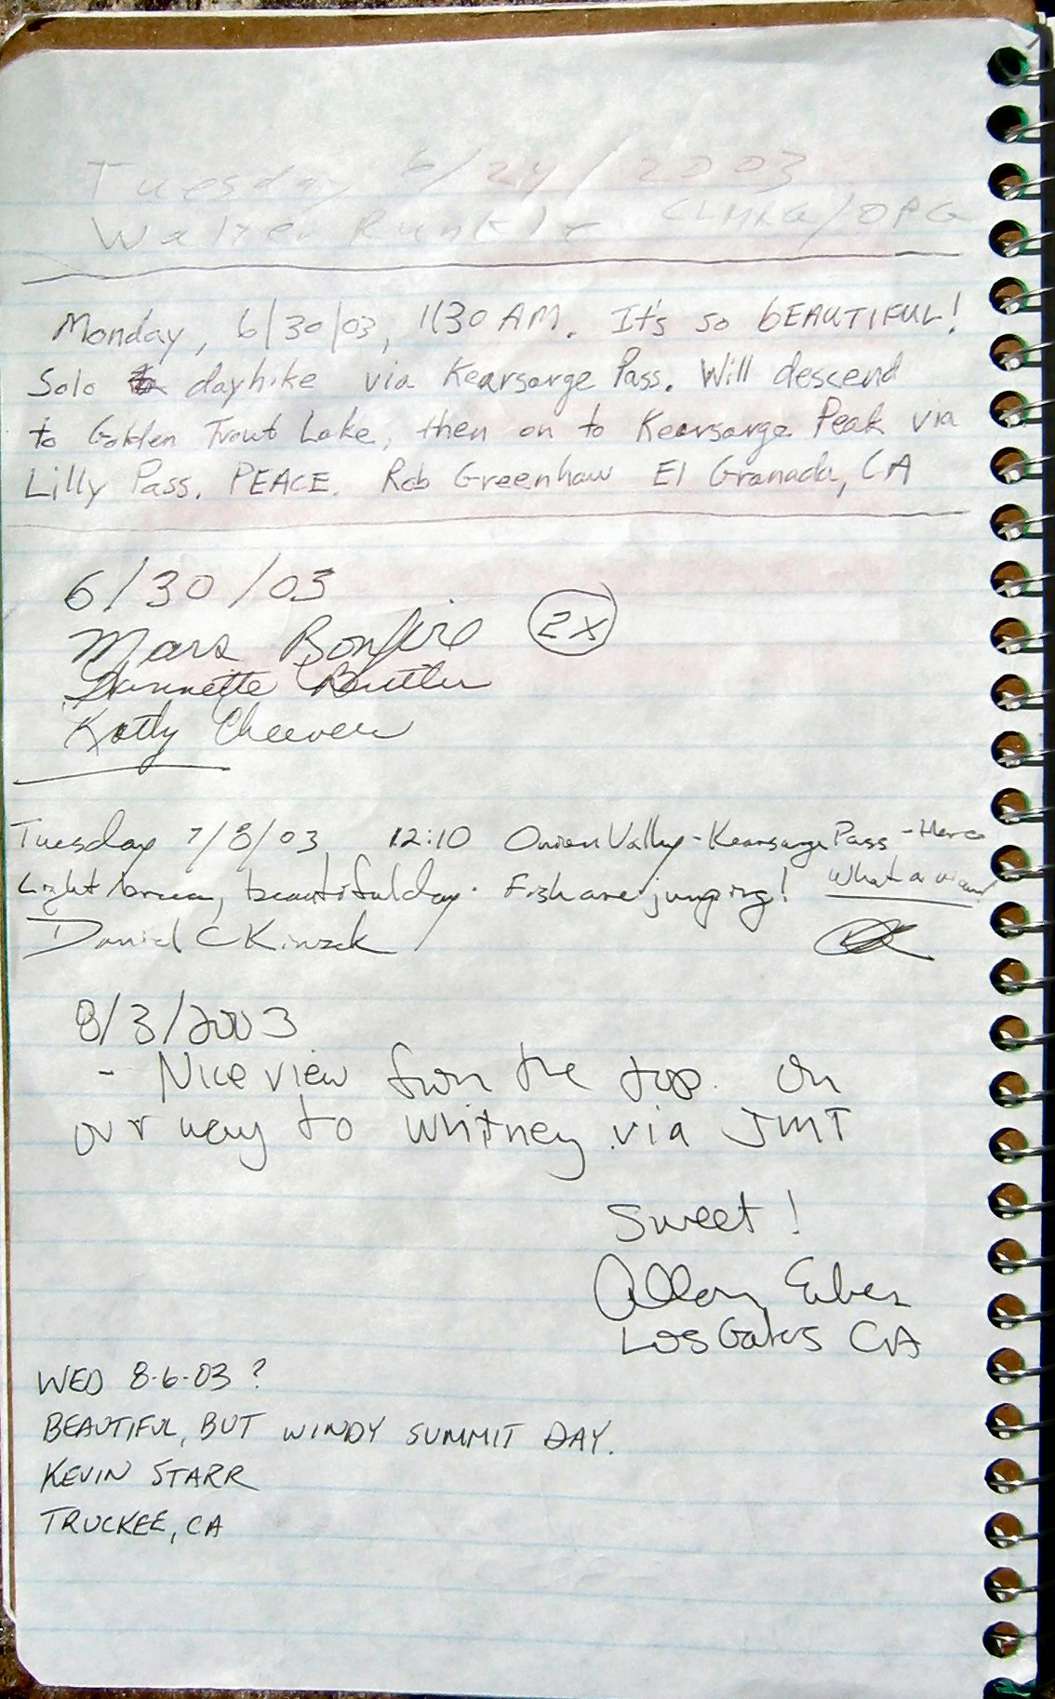 Tuesday 6/24/2003
Walter Runkle CLMRG/DPG
Monday, 6/30/03, 1130 AM. It's so bEAUTIFUL!
Solo dayhike via Kearsarge Pass. Will descend
to Golden Trout Lake, then on to Kearsarge Peak via
Lilly Pass. PEACE. Rob Greenhaw El Granada, CA
6/30/03
Mars Bonfire 2X
Butler
Kathy Cheever
Tuesday 7/8/03 12:10 Onion Valley - Kearsarge Pass - Here
Light breeze, beautiful day. Fish are jumping! What a
Daniel C
8/3/2003
- Nice view from the top. On
our way to Whitney via JMT
Sweet!
Los Gatos CA
WED 8-6-03?
BEAUTIFUL, BUT WINDY SUMMIT DAY.
KEVIN STARR
TRUCKEE, CA